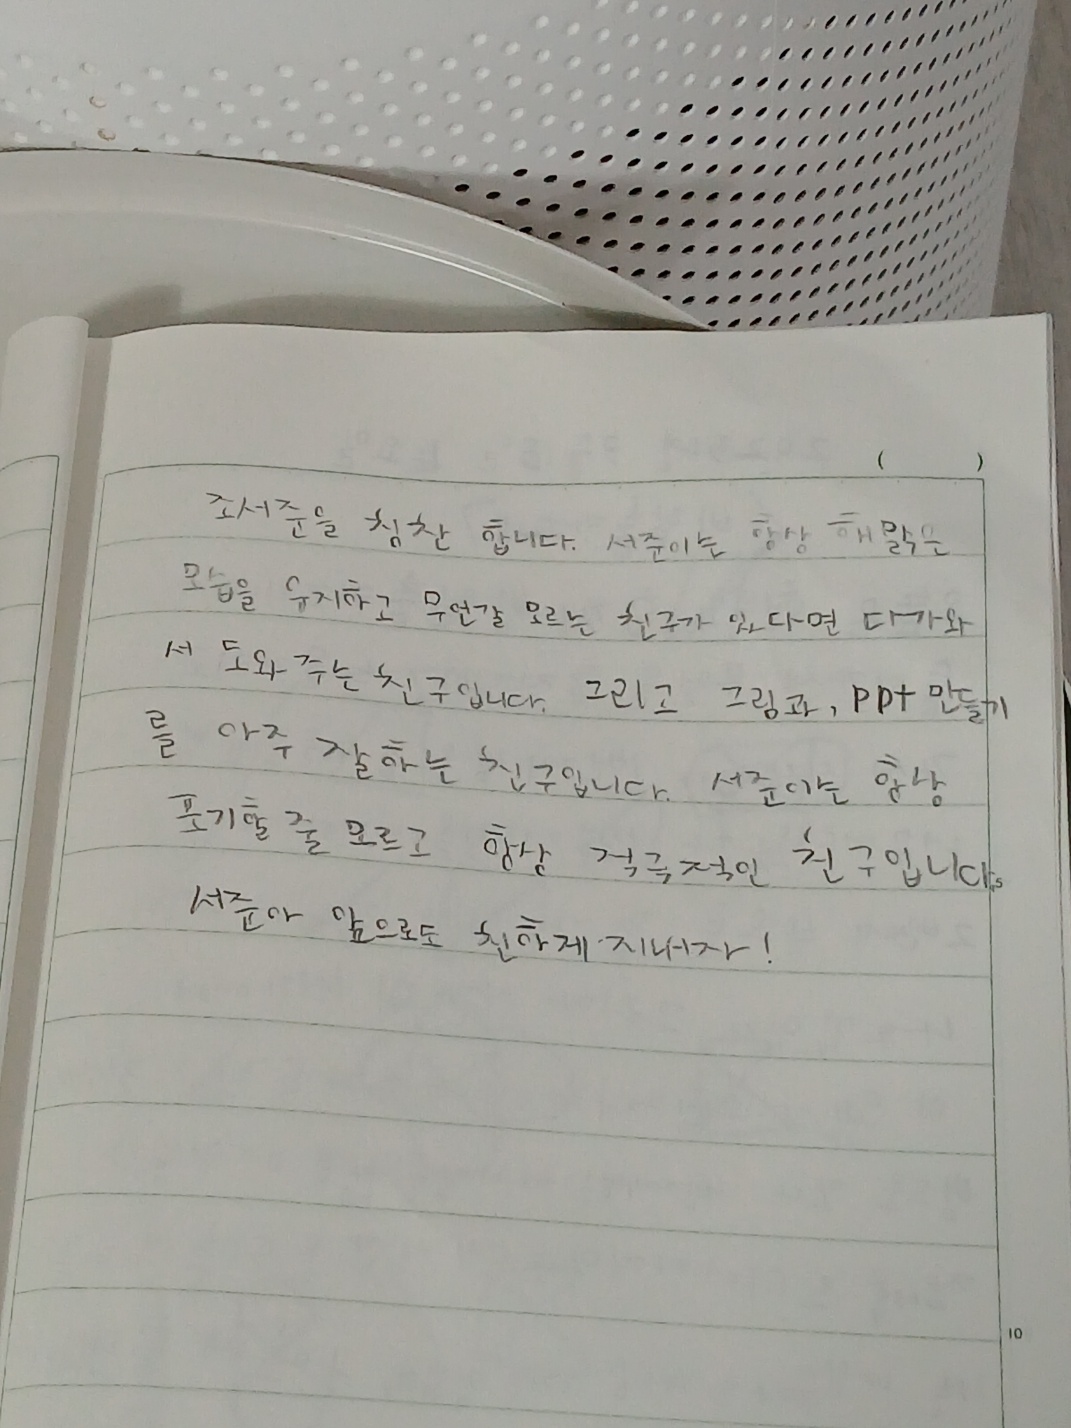 (          )
조서준을 칭찬 합니다. 서준이는 항상 해맑은
모습을 유지하고 무언갈 모르는 친구가 있다면 다가와
서 도와주는 친구입니다. 그리고 그림과, ppt 만들기
를 아주 잘하는 친구입니다. 서준이는 항상
포기할 줄 모르고 항상 적극적인 친구입니다.
서준아 앞으로도 친하게 지내자!
10